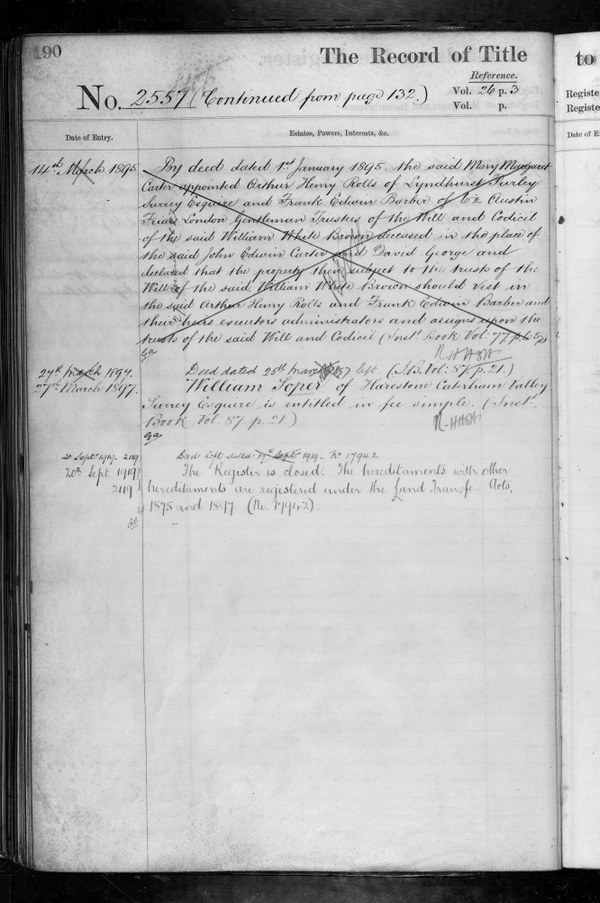 190
The Record of Title
Reference.
No. 2557 (Continued from page 132.)
Vol. 26 p. 3
Vol. p.
Date of Entry.
Estates, Powers, Interests, &c.
14th March 1895.
By deed dated 1st January 1895. the said Mary Margaret
Carter appointed Arthur Henry Rolls of Lyndhurst Purley
Surrey Esquire and Frank Edwin Barber of Austin
Friars London Gentleman Trustees of the Will and Codicil
of the said William White Brown deceased in the place of
the said John Edwin Carter and David George and
declared that the property then subject to the trusts of the
Will of the said William White Brown should vest in
the said Arthur Henry Rolls and Frank Edwin Barber and
their heirs executors administrators and assigns upon the
trusts of the said Will and Codicil (Inst. Book Vol. 77 p.
27th March 1897.
Deed dated 25th March 1897 left (I.B. Vol: 87. p. 21.)
27th March 1897.
William Soper of Harestone Caterham Valley
Surrey Esquire is entitled in fee simple. (Inst.
Book Vol. 87 p. 21)
20 Sept. 1919. 2119
Dad left dated 17th Sept. 1919. No 17942
20th Sept. 1919
The Register is closed. The hereditaments with other
2119
hereditaments are registered under the Land Transfer Acts,
1875 and 1897 (No. 17942).
to
Registe
Registe
Date of E